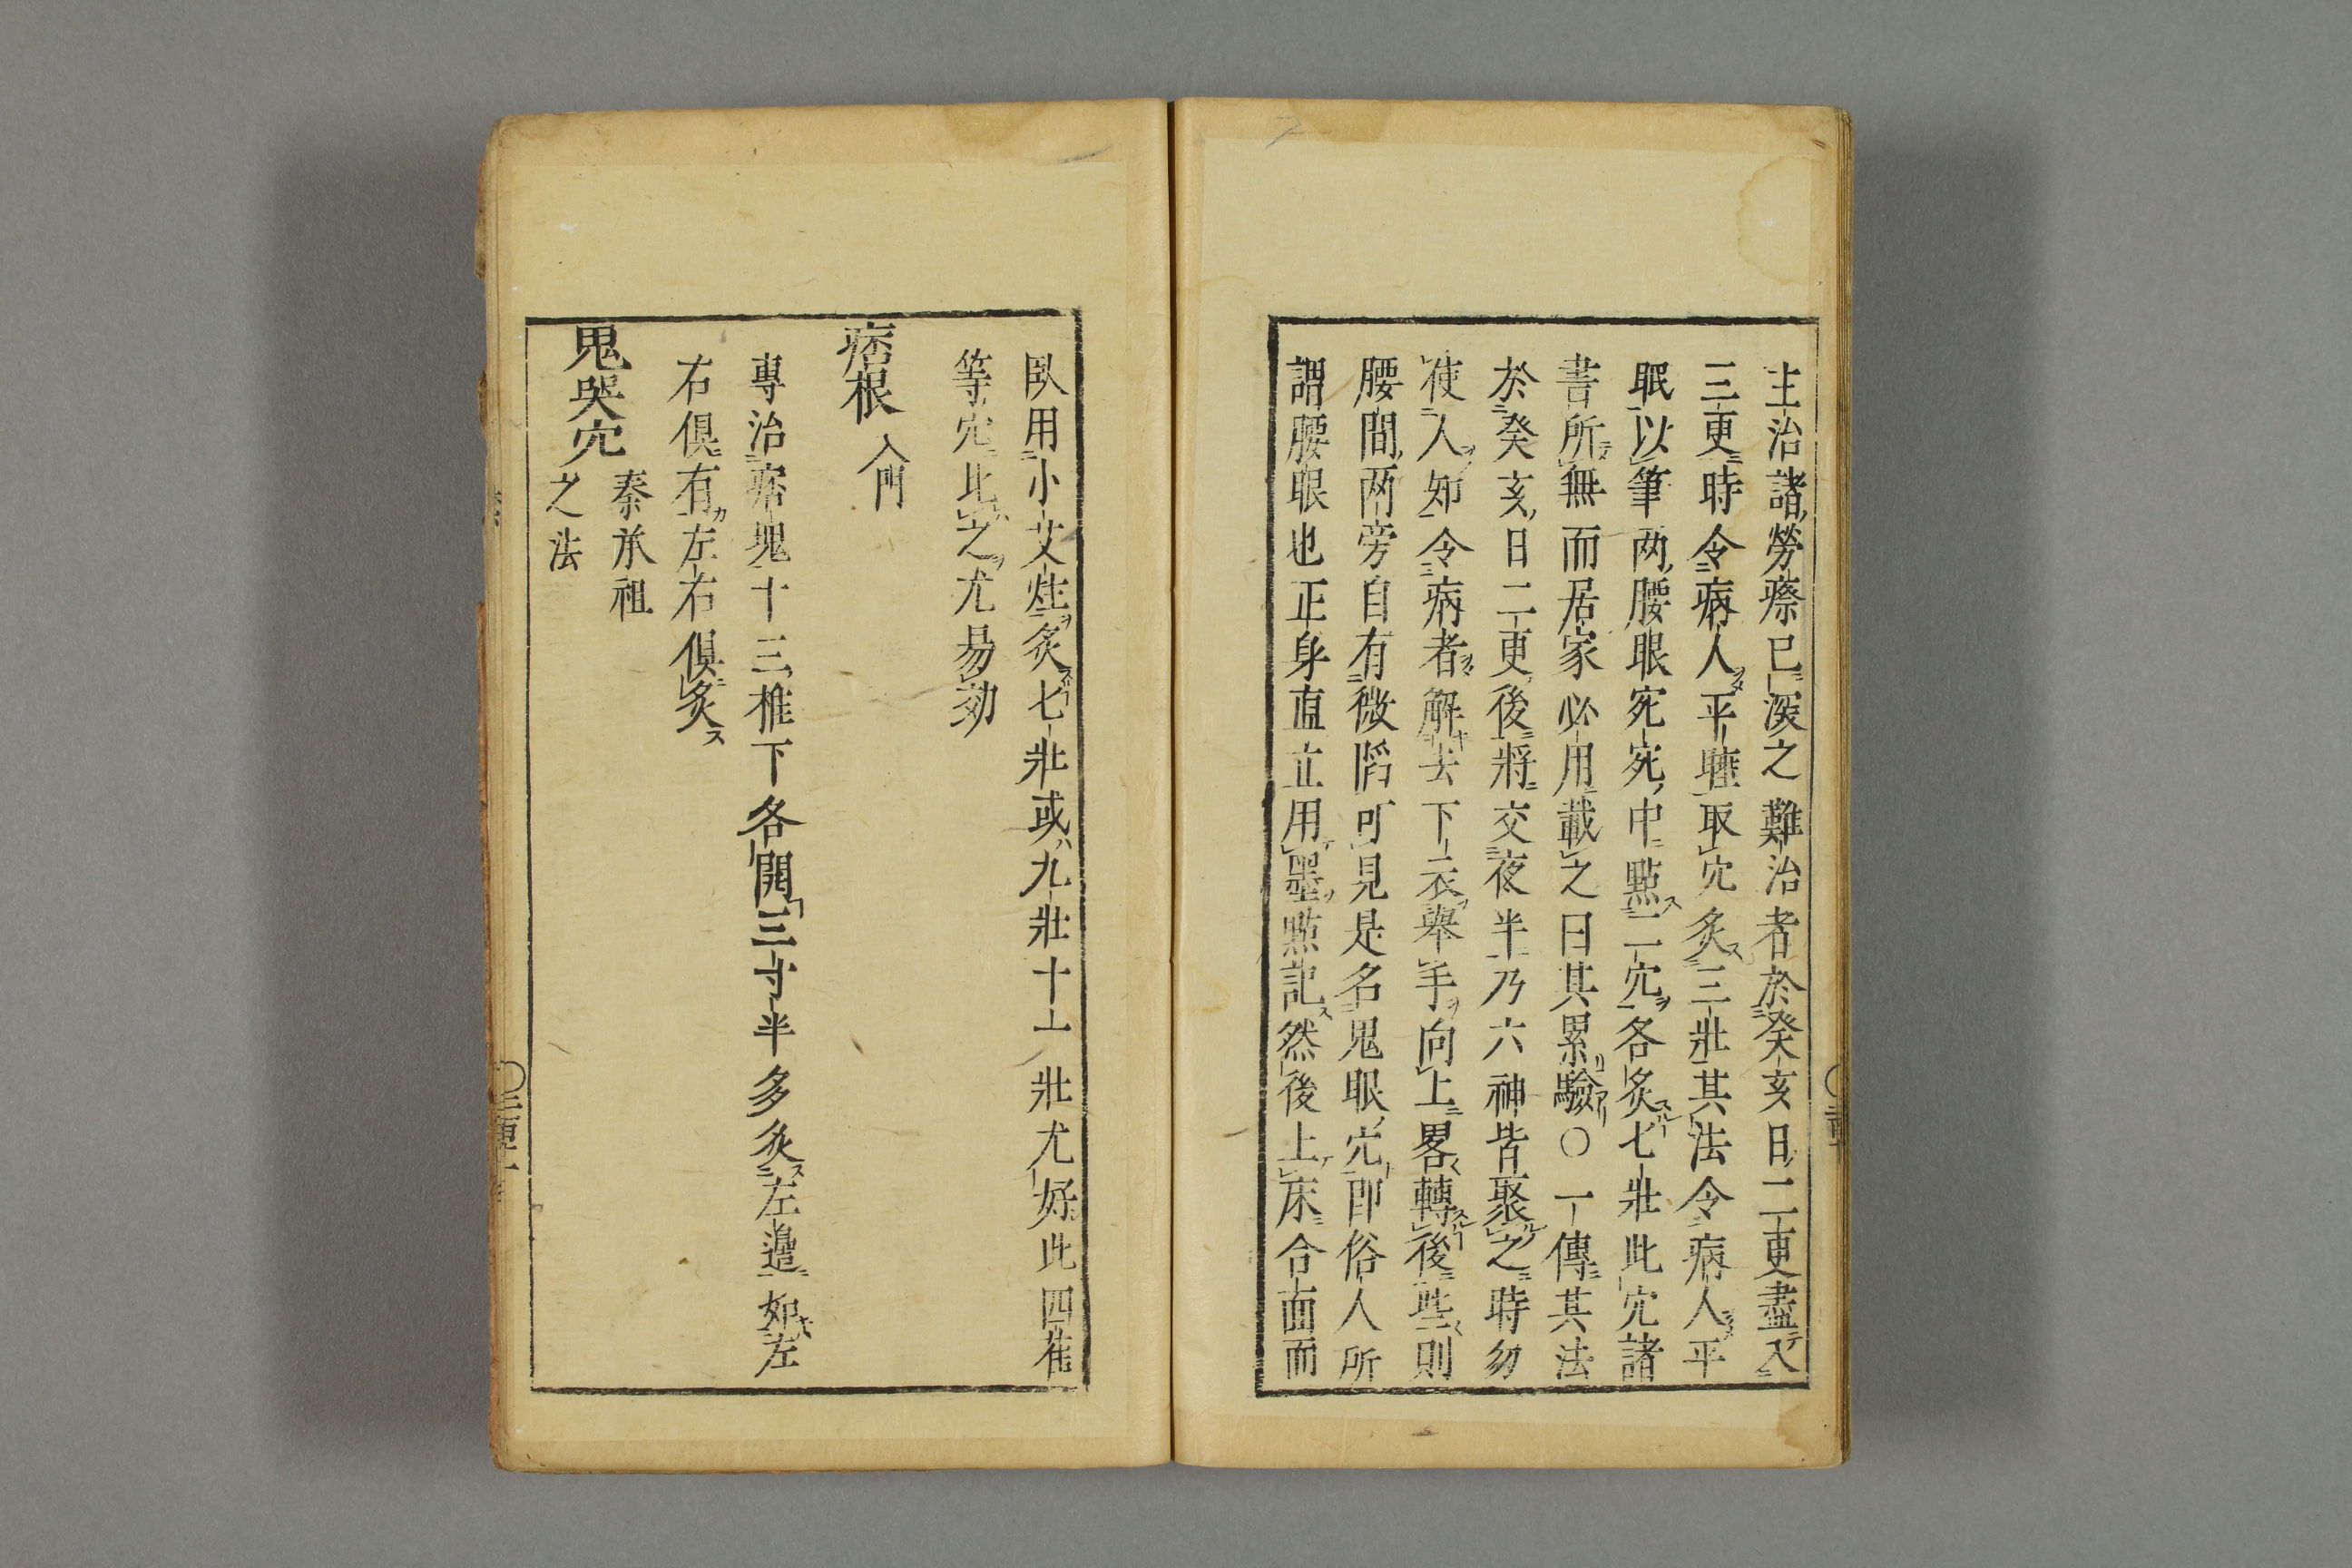 主治諸勞瘵已深之難治者於癸亥日二更盡入
三更時令病人平睡取穴灸三壯其法令病人平
眠以筆两腰眼宛宛中點二穴各灸七壯此穴諸
書所無而居家必用載之曰其累驗○一傳其法
於癸亥日二更後將交夜半乃六神皆聚之時勿
使人知令病者解去下衣舉手向上畧轉後些則
腰間两旁自有微陷可見是名鬼眼穴即俗人所
謂腰眼也正身直立用墨點記然後上床合面而
臥用小艾炷灸七壯或九壯十一壯尤好此四花
等穴比之尤易効
痞根 入門
專治痞塊十三椎下各開三寸半多灸左邊如左
右俱有左右俱灸
鬼哭穴 秦承祖
之法